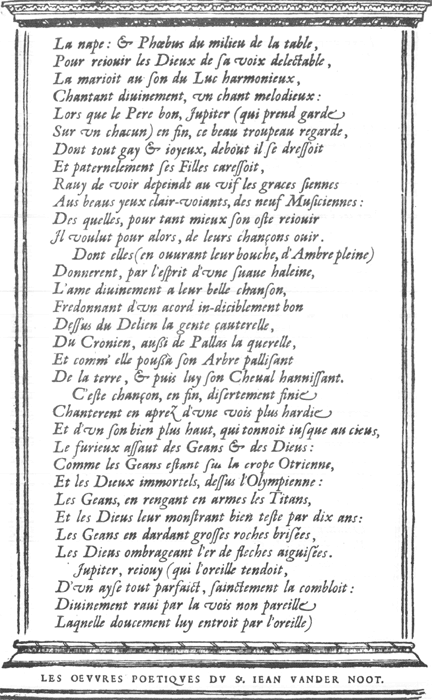 La nape: & Phœbus du milieu de la table,
Pour reiouir les Dieux de ſa voix delectable,
La marioit au ſon du Luc harmonieux,
Chantant diuinement, vn chant melodieux:
Lors que le Pere bon, Jupiter (qui prend garde
Sur vn chacun) en fin, ce beau troupeau regarde,
Dont tout gay & ioyeux, debout il ſe dreſſoit
Et paternelement ſes Filles careſſoit,
Rauy de voir depeindt au vif les graces ſiennes
Aus beaus yeux clair-voiants, des neuf Muſiciennes:
Des quelles, pour tant mieux ſon oſte reiouir
Jl voulut pour alors, de leurs chançons ouir.
Dont elles (en ouurant leur bouche, d'Ambre pleine)
Donnerent, par l'eſprit d'vne ſuaue haleine,
L'ame diuinement a leur belle chanſon,
Fredonnant d'vn acord in-diciblement bon
Deſſus du Delien la gente çauterelle,
Du Cronien, auſsi de Pallas la querelle,
Et comm' elle pouſſa ſon Arbre palliſant
De la terre, & puis luy ſon Cheual hanniſſant.
C'eſte chançon, en fin, diſertement finie
Chanterent en aprez d'vne vois plus hardie
Et d'vn ſon bien plus haut, qui tonnoit iuſque au cieus,
Le furieux aſſaut des Geans & des Dieus:
Comme les Geans eſtant ſus la crope Otrienne,
Et les Dieux immortels, deſſus l'Olympienne:
Les Geans, en rengant en armes les Titans,
Et les Dieus leur monſtrant bien teſte par dix ans:
Les Geans en dardant groſſes roches briſées,
Les Dieus ombrageant l'er de fleches aiguiſées.
Jupiter, reiouy (qui l'oreille tendoit,
D'vn ayſe tout parfaict, ſainctement la combloit:
Diuinement raui par la vois non pareille
Laquelle doucement luy entroit par l'oreille)
LES OEVVRES POETIQVES DV Sr. IEAN VANDER NOOT.